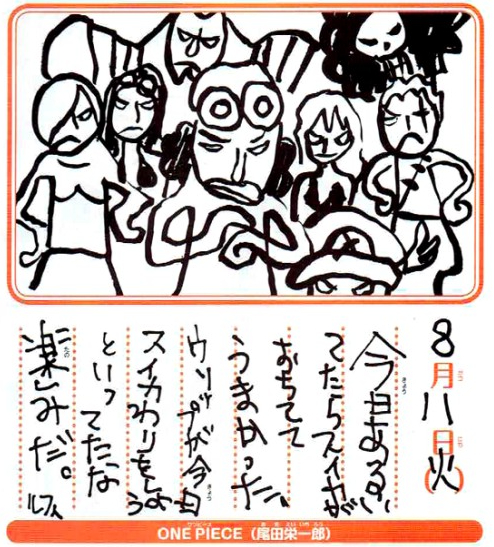 8月八日(火)
今日あるい
てたらスイカが
おちてて
うまかった。
ウソップが今日
スイカわりをしよう
といってたな
楽しみだ。
ルフィ
ONE PIECE(尾田栄一郎)